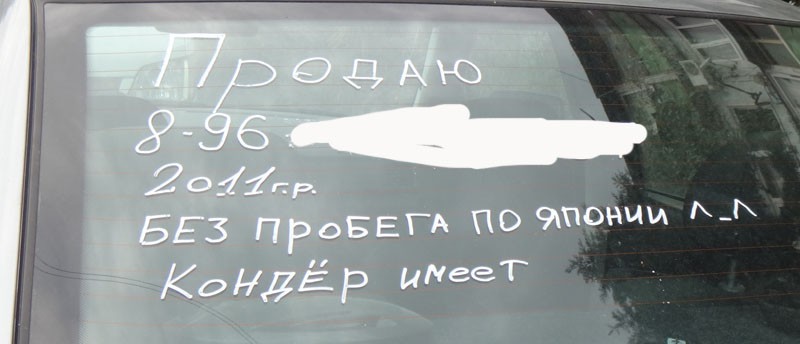 Продаю
8-96
2011г.р.
БЕЗ ПРОБЕГА ПО ЯПОНИИ ^_^
Кондёр имеет